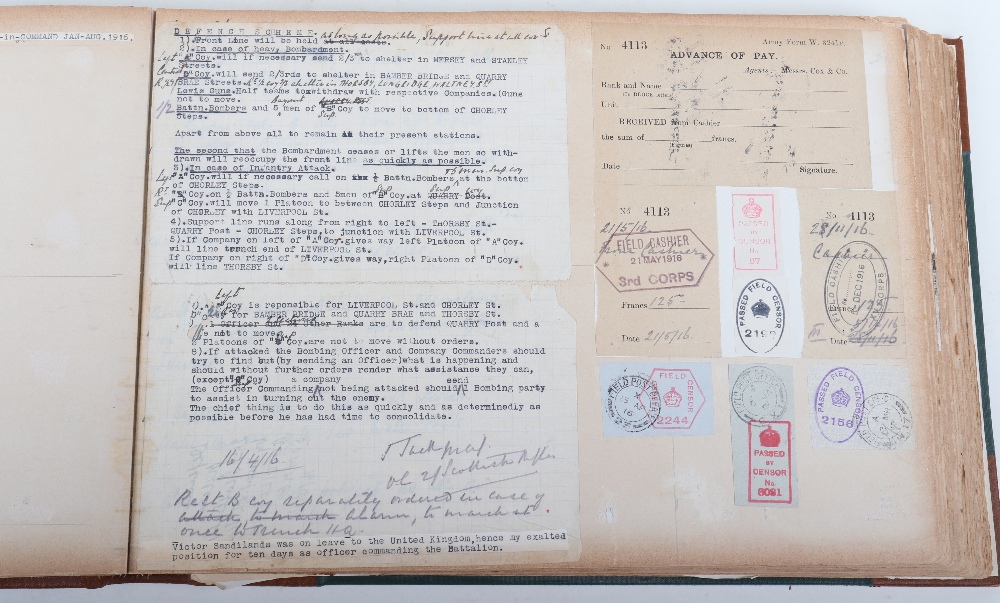 -in-COMMAND JAN-AUG.1916.
DEFENCE SCHEME. as long as possible, Support line at all cost
1).Front Line will be held at all costs.
2).In case of heavy Bombardment.
Left "A"Coy.will if necessary send 2/3 to shelter in MERSEY and STANLEY
Streets.
"D"Coy.will send 2/3rds to shelter in BAMBER BRIDGE and QUARRY
BRAE Streets.
Lewis Guns.Half teams to withdraw with respective Companies.(Guns
not to move.
1/2 Battn.Bombers and 5 men of "B"Coy to move to bottom of CHORLEY
Steps.
Apart from above all to remain at their present stations.
The second that the Bombardment ceases or lifts the men so with-
drawn will reoccupy the front line as quickly as possible.
3).In case of Infantry Attack.
"A"Coy.will if necessary call on ½ Battn.Bombers, at the bottom
of CHORLEY Steps.
"D"Coy.on ½ Battn.Bombers and 5men of "B"Coy.at QUARRY Post.
"C"Coy.will move 1 Platoon to between CHORLEY Steps and Junction
of CHORLEY with LIVERPOOL St.
4).Support line runs along from right to left - THORSBY St.-
QUARRY Post - CHORLEY Steps,to junction with LIVERPOOL St.
5).If Company on left of "A"Coy.gives way left Platoon of "A"Coy.
will line trench end of LIVERPOOL St.
If Company on right of "D"Coy.gives way,right Platoon of "D"Coy.
will line THORSBY St.
Left
"Coy is reponsible for LIVERPOOL St.and CHORLEY St.
for BAMBER BRIDGE and QUARRY BRAE and THORSBY St.
Officer Other Ranks are to defend QUARRY Post and a
not to move.
Platoons of "B"Coy.are not to move without orders.
8).If attacked the Bombing Officer and Company Commanders should
try to find but(by sending an Officer)what is happening and
should without further orders render what assistance they can,
(except"B"Coy) a company send
The Officer Commanding not being attacked should a Bombing party
to assist in turning out the enemy.
The chief thing is to do this as quickly and as determinedly as
possible before he has had time to consolidate.
16/4/16
2/Scottish Rifles
B coy separately ordered in case of
attack, to march alarm, to march at
once to Trench HQ.
Victor Sandilands was on leave to the United Kingdom,hence my exalted
position for ten days as officer commanding the Battalion.
No 4113
Army Form W.
ADVANCE OF PAY.
Agents, Messrs. Cox & Co.
Rank and Name
Unit
RECEIVED from Cashier
the sum of francs.
Date
Signature.
No 4113
21/5/16
FIELD CASHIER
21 MAY 1916
3rd CORPS
Francs 125
Date 21/5/16
PASSED
BY
CENSOR
PASSED FIELD CENSOR
No 4113
28/11/16
Cashier
FIELD CASHIER
DEC 1916
CORPS
Francs 125
Date
FIELD POST
FIELD
CENSOR
2244
PASSED
BY
CENSOR
No
6091
PASSED FIELD CENSOR
2158